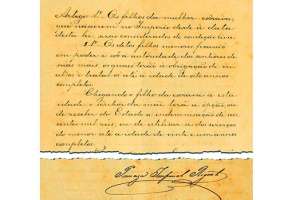 Artigo 1º. Os filhos da mulher escrava,
que nascerem no Imperio desde a data
desta lei, serão considerados de condição livre.
§ 1º Os ditos filhos menores ficarão
em poder e sob a autoridade dos senhores de
suas mães, os quaes terão a obrigação de
até a idade de oito annos
completos.
Chegando o filho da escrava a esta
idade, o senhor da mãe terá a opção, ou
de receber do Estado a indemnisação de
ou de utilisar-se dos serviços
do menor até a idade de vinte e um annos
completos.
Princeza Imperial Regente